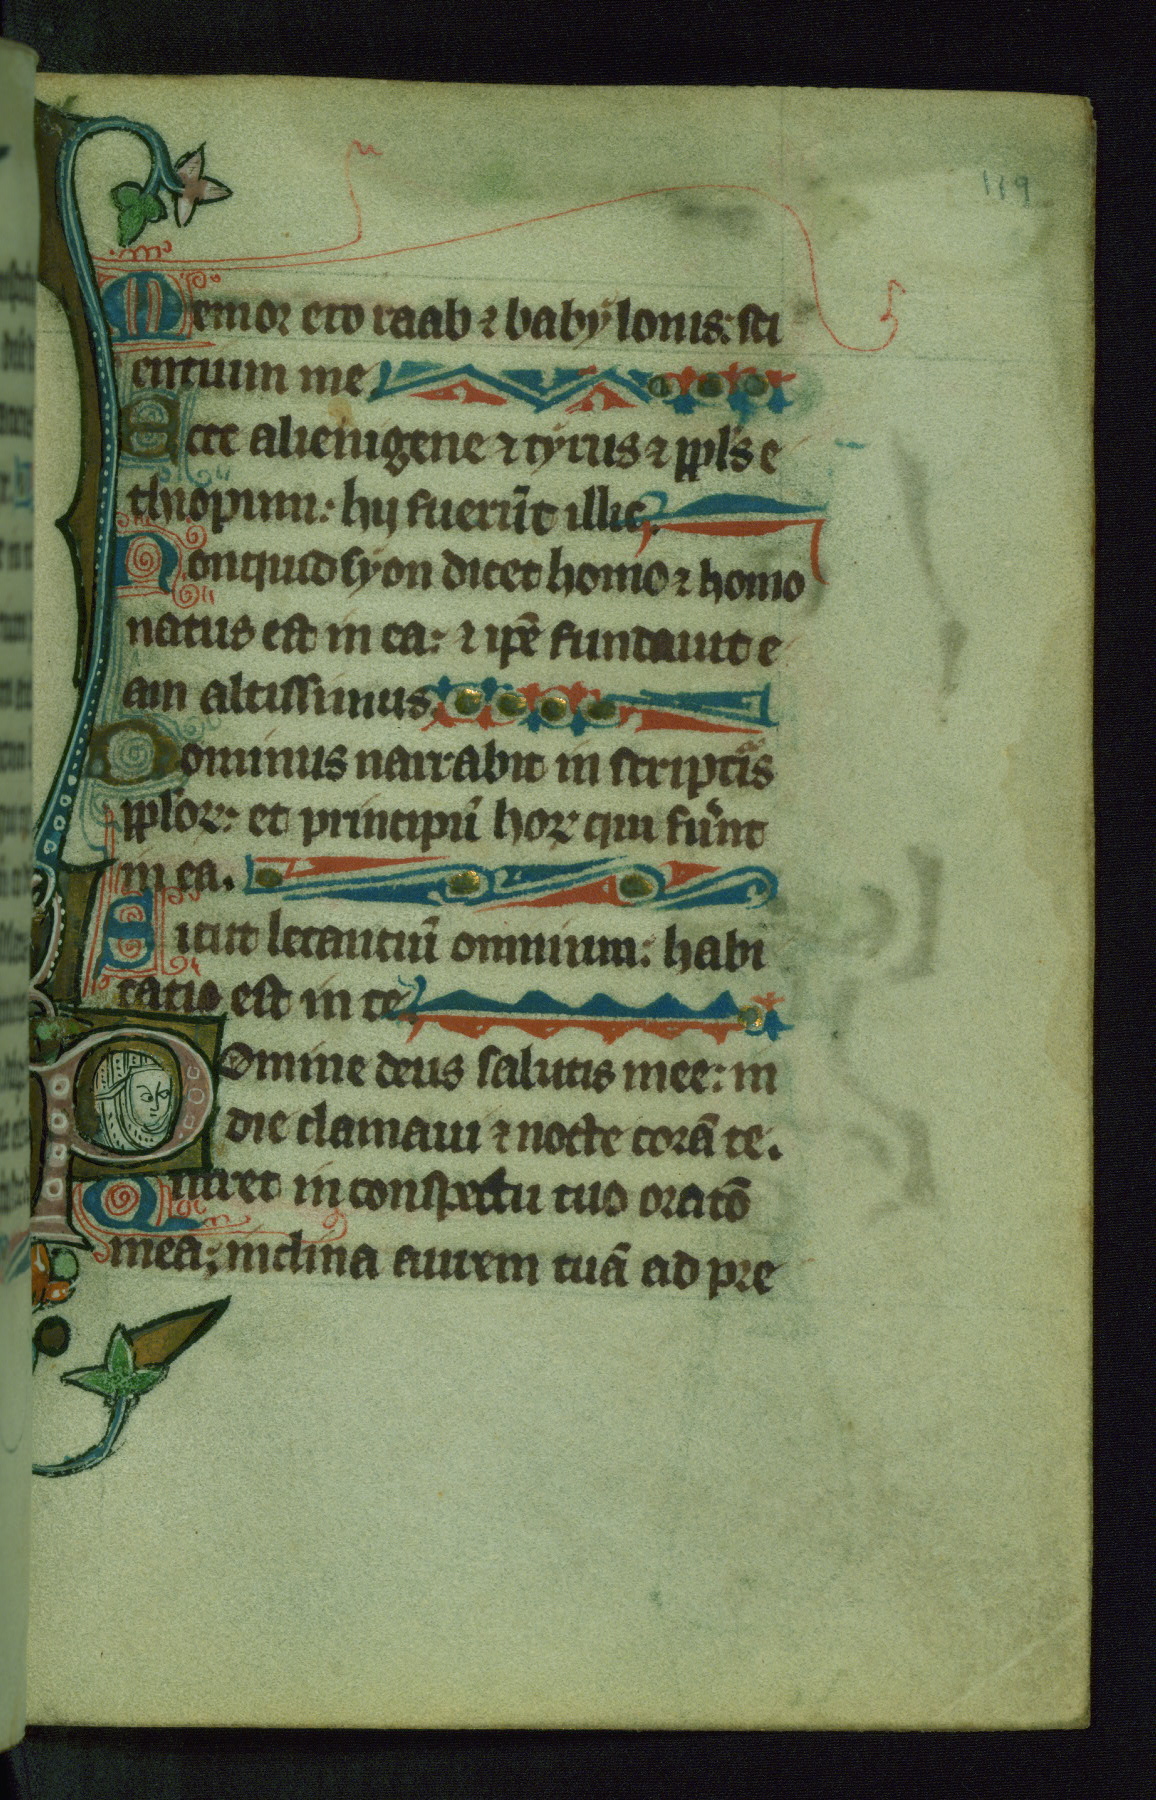 119
Memor ero raab ⁊ babylonis: sci
entium me
Ecce alienigene ⁊ tyrus ⁊ ppl's e
thiopum: hij fuerūt illic.
Nonquid syon dicet homo ⁊ homo
natus est in ea: ⁊ ip̄e fundauit e
am altissimus.
Dominus narrabit in scripturis
pplōꝝ: et principū hoꝝ qui fuer̄nt
in ea.
Sicut letantiū omnium: habi
tatio est in te
Domine deus salutis mee: in
die clamaui ⁊ nocte corā te.
Intret in conspectu tuo oratō
mea: inclina aurem tuā ad pre